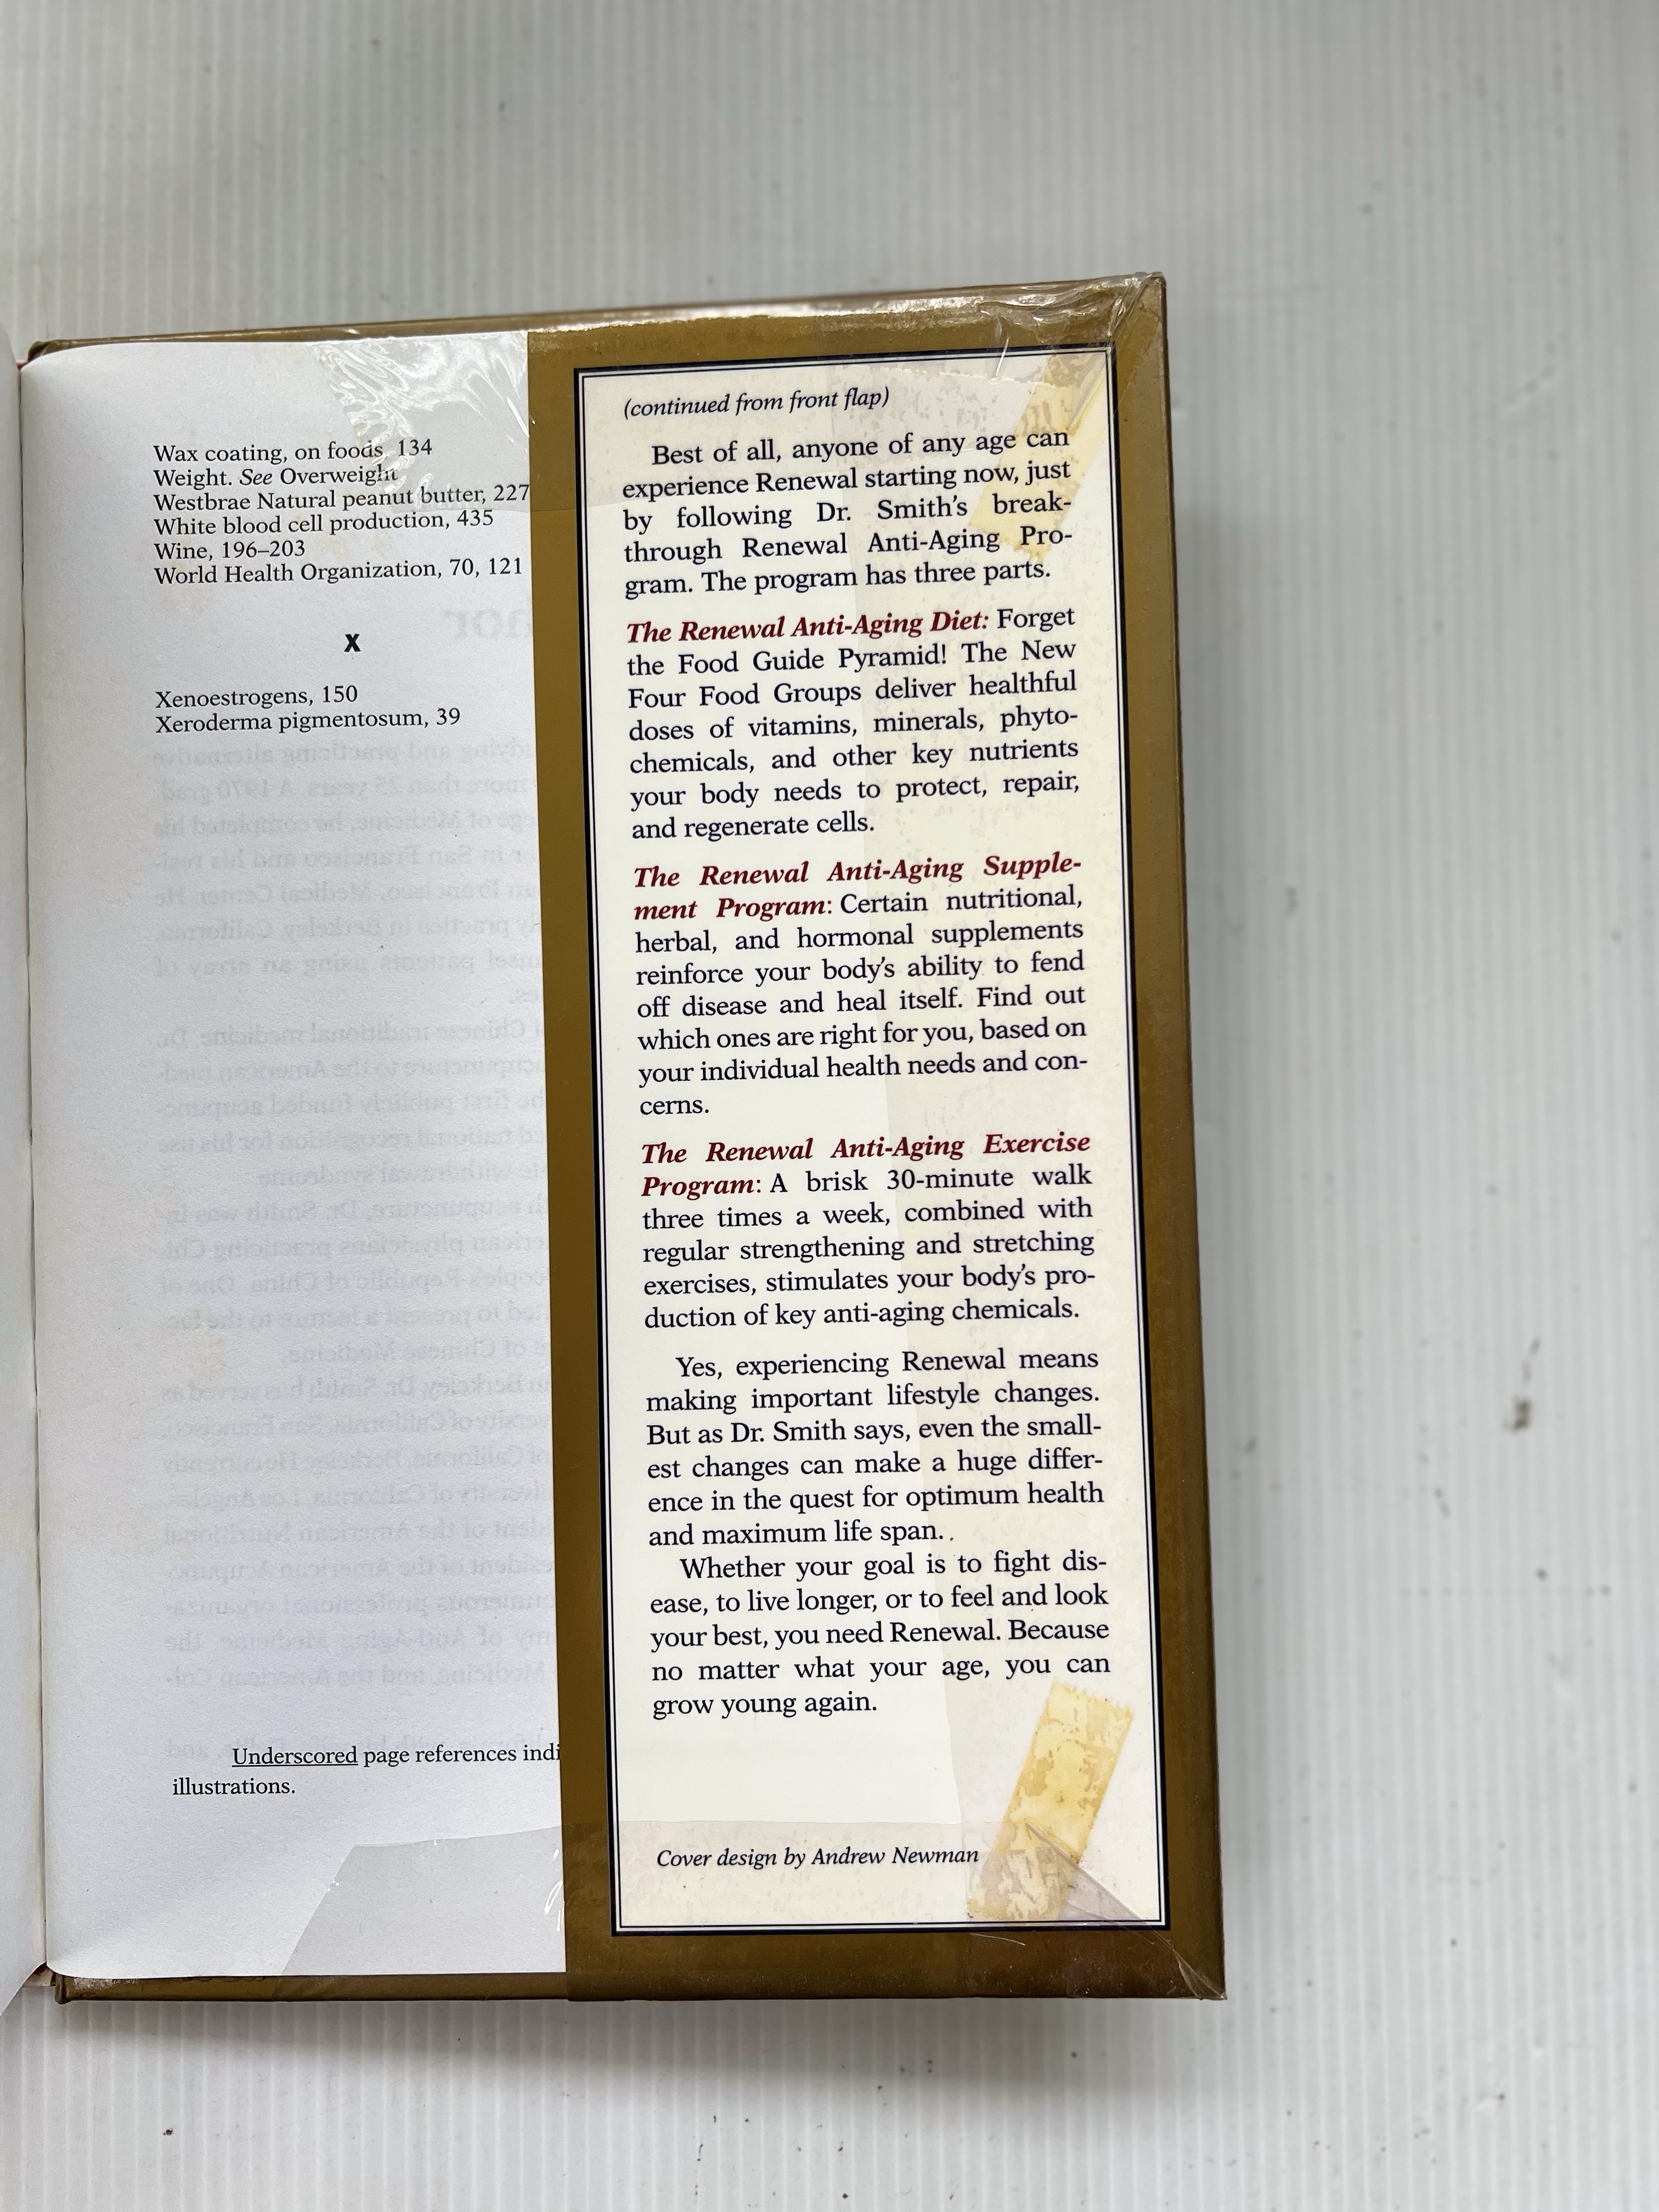 Wax coating, on foods, 134
Weight. See Overweight
Westbrae Natural peanut butter, 227
White blood cell production, 435
Wine, 196–203
World Health Organization, 70, 121
X
Xenoestrogens, 150
Xeroderma pigmentosum, 39
Underscored page references indi
illustrations.
(continued from front flap)
Best of all, anyone of any age can
experience Renewal starting now, just
by following Dr. Smith's break-
through Renewal Anti-Aging Pro-
gram. The program has three parts.
The Renewal Anti-Aging Diet: Forget
the Food Guide Pyramid! The New
Four Food Groups deliver healthful
doses of vitamins, minerals, phyto-
chemicals, and other key nutrients
your body needs to protect, repair,
and regenerate cells.
The Renewal Anti-Aging Supple-
ment Program: Certain nutritional,
herbal, and hormonal supplements
reinforce your body's ability to fend
off disease and heal itself. Find out
which ones are right for you, based on
your individual health needs and con-
cerns.
The Renewal Anti-Aging Exercise
Program: A brisk 30-minute walk
three times a week, combined with
regular strengthening and stretching
exercises, stimulates your body's pro-
duction of key anti-aging chemicals.
Yes, experiencing Renewal means
making important lifestyle changes.
But as Dr. Smith says, even the small-
est changes can make a huge differ-
ence in the quest for optimum health
and maximum life span.
Whether your goal is to fight dis-
ease, to live longer, or to feel and look
your best, you need Renewal. Because
no matter what your age, you can
grow young again.
Cover design by Andrew Newman